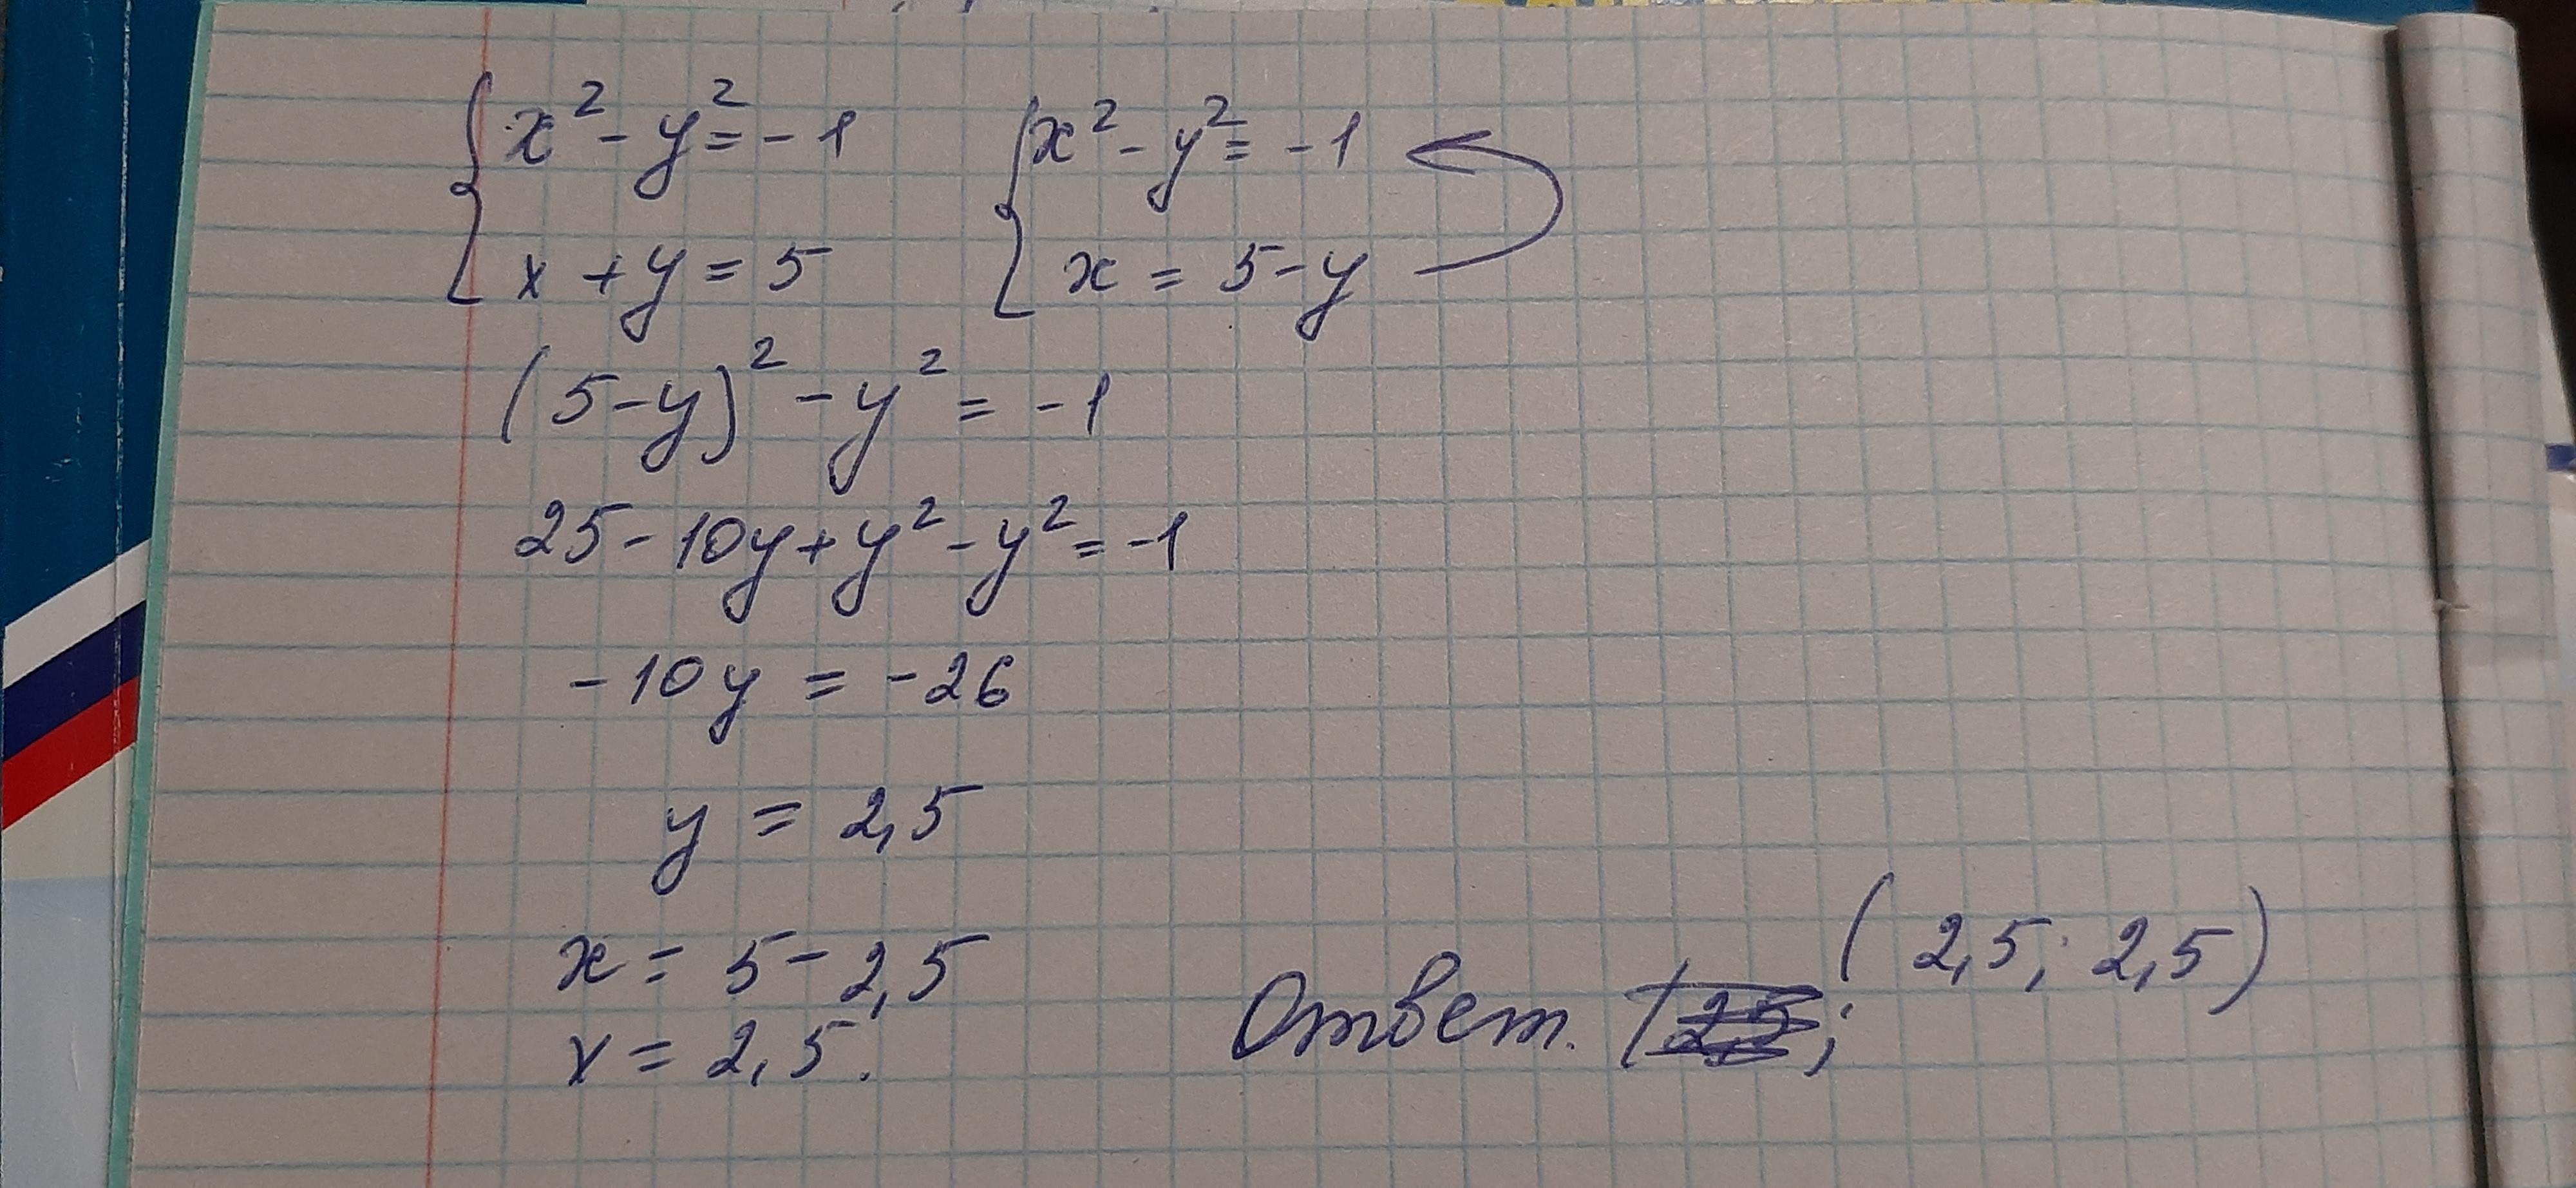 { x² - y² = -1 { x² - y² = -1
x + y = 5 x = 5 - y
(5 - y)² - y² = -1
25 - 10y + y² - y² = -1
-10y = -26
y = 2,5
x = 5 - 2,5
x = 2,5.
Ответ. (2,5; 2,5)